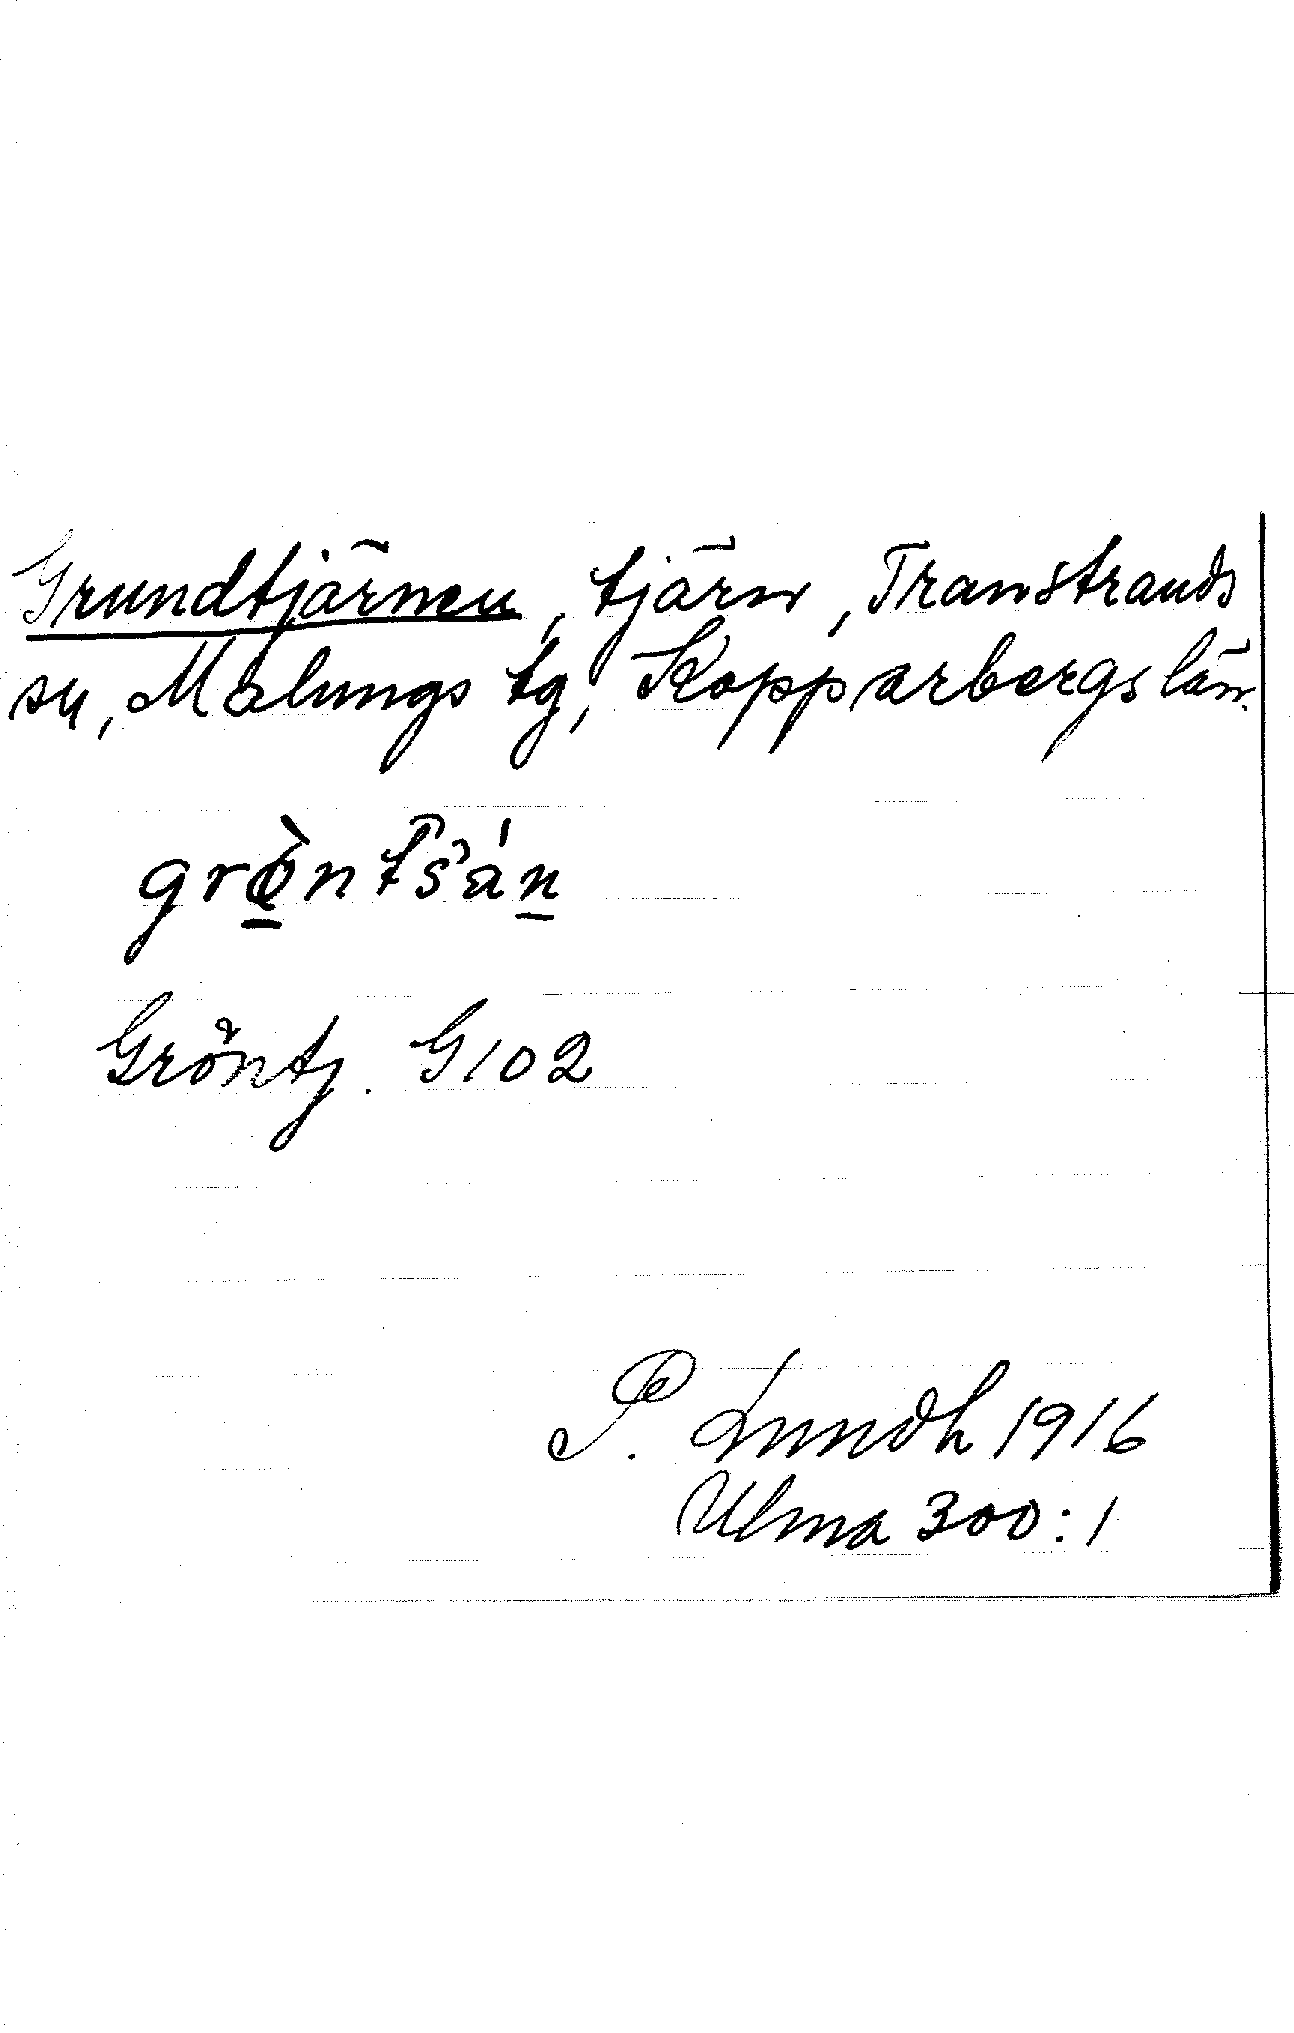 Grundtjärnen, tjärn, Transtrands
sn, Malungs tg, Kopparbergs län.
Gröntj. G102
P. Lundh 1916
Ulma 300:1